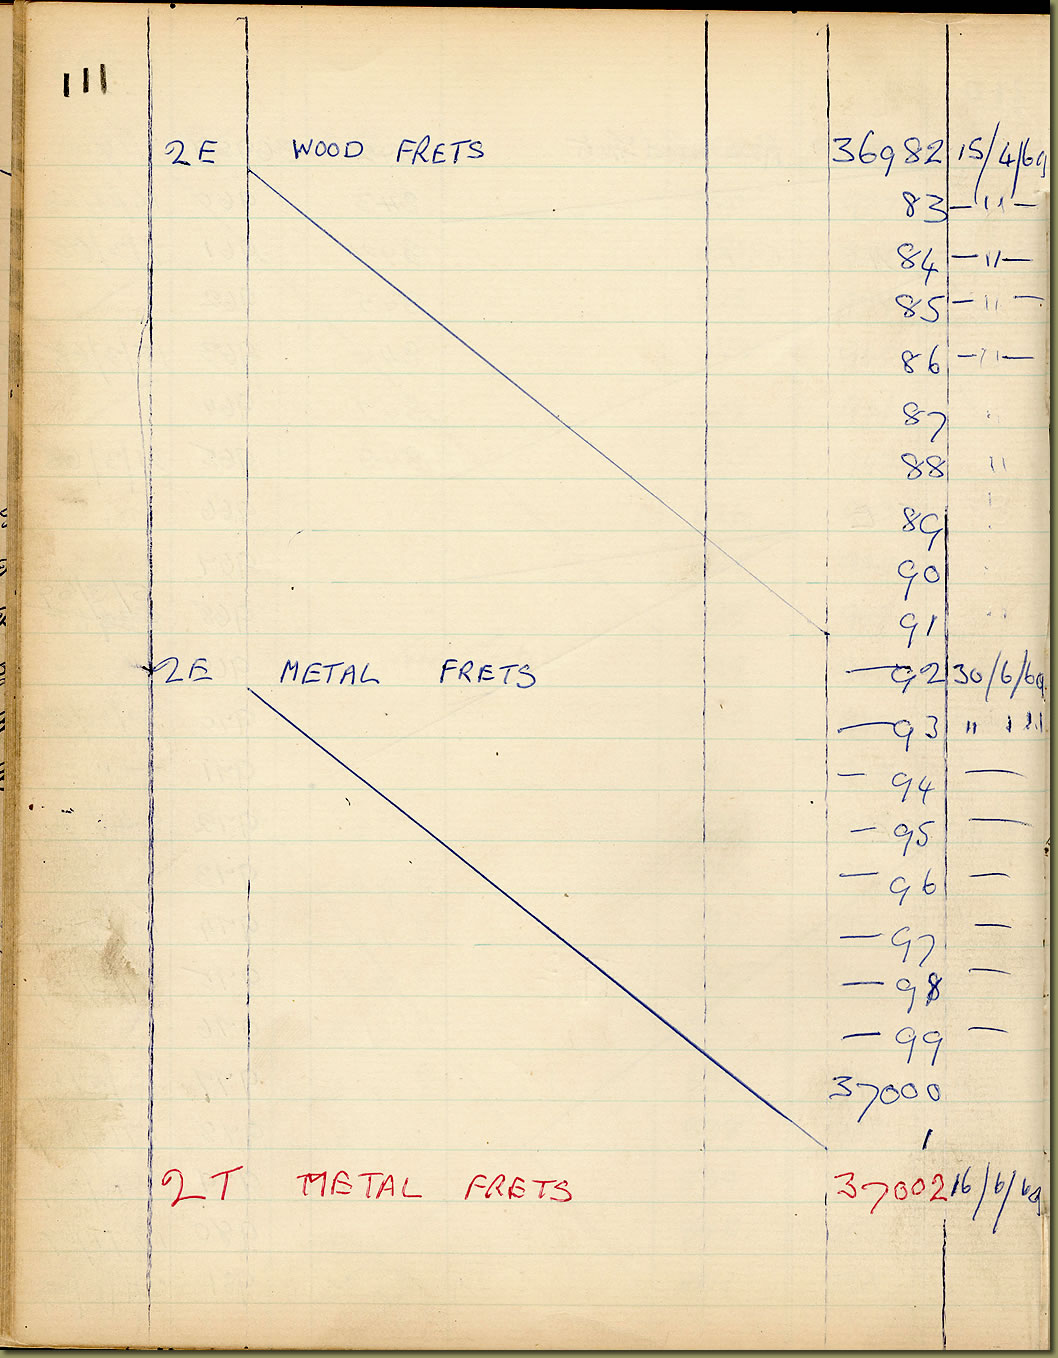 111
2E WOOD FRETS 36982 15/4/69
83 — " —
84 — " —
85 — " —
86 — " —
87 "
88 "
89 "
90 "
91 "
2E METAL FRETS — 92 30/6/69
— 93 " " "
— 94 —
— 95 —
— 96 —
— 97 —
— 98 —
— 99 —
37000
1
2T METAL FRETS 37002 16/6/69